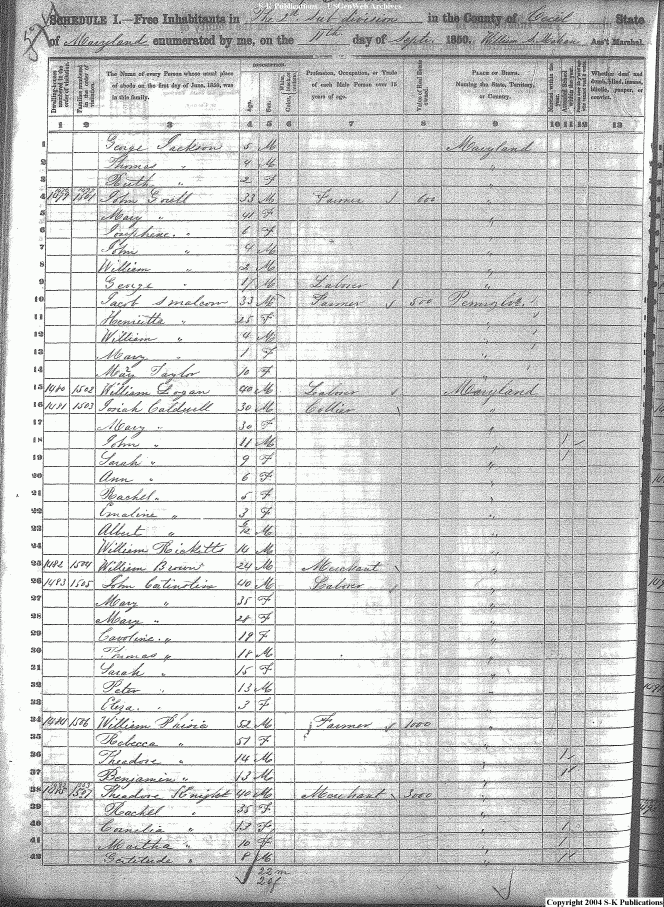 S-K Publications - USGenWeb Archives
SCHEDULE I.—Free Inhabitants in The 2d Sub division in the County of Cecil State
of Maryland enumerated by me, on the 11th day of Sept. 1850. William Ass't Marshal.
Dwelling-houses numbered in the order of visitation.
Families numbered in the order of visitation.
The Name of every Person whose usual place of abode on the first day of June, 1850, was in this family.
DESCRIPTION.
Age.
Sex.
Profession, Occupation, or Trade of each Male Person over 15 years of age.
Value of Real Estate owned.
PLACE OF BIRTH. Naming the State, Territory, or Country.
Whether deaf and dumb, blind, insane, idiotic, pauper, or convict.
1 2 3 4 5 6 7 8 9 10 11 12 13
1 George Jackson 5 M Maryland
2 Thomas " 4 M "
3 Ruth " 2 F "
4 1501 John 33 M Farmer 600 "
5 Mary " 41 F "
6 Josephine " 6 F "
7 John " 4 M "
8 William " 2 M "
9 George " M Laborer "
10 Jacob Smalcom 33 M Farmer 500
11 Henrietta " 25 F
12 William " 4 M
13 Mary " 1 F
14 Mary Taylor 10 F
15 1480 1502 William Logan 40 M Laborer Maryland
16 1481 1503 Josiah Caldwell 30 M Collier "
17 Mary " 30 F "
18 John " 11 M "
19 Sarah " 9 F "
20 Ann " 6 F "
21 Rachel " 5 F "
22 Emaline " 3 F "
23 Albert " M "
24 William Ricketts 14 M "
25 1482 1504 William Brown 24 M Merchant "
26 1483 1505 John 40 M Laborer "
27 Mary " 35 F "
28 Mary " 28 F "
29 Caroline " 19 F "
30 Thomas " 18 M "
31 Sarah " 15 F "
32 Peter " 13 M "
33 Eliza " 3 F "
34 1484 1506 William 52 M Farmer 1000 "
35 Rebecca " 51 F "
36 Theadore " 14 M "
37 Benjamin " 13 M "
38 Theadore 40 M Merchant 3000 "
39 Rachel " 35 F "
40 Cornelia " 13 F "
41 Martha " 10 F "
42 Gertitude " 8 M "
22 m
20 f
Copyright 2004 S-K Publications